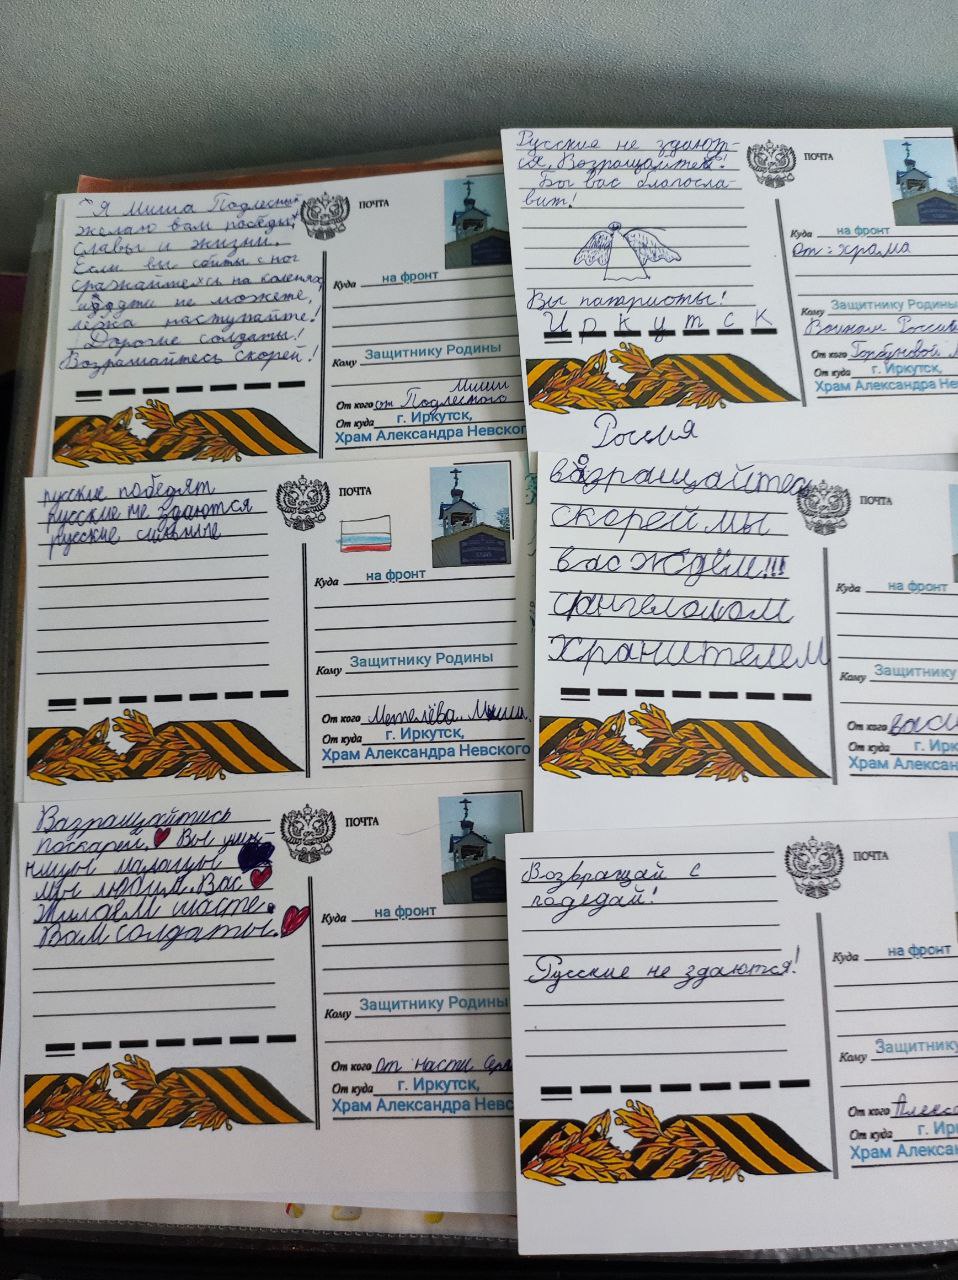 Я Миша Подлесный
желаю вам победы,
славы и жизни.
Если вы сбиты с ног
сражайтесь на коленях,
идти не можете,
лёжа наступайте!
Дорогие солдаты!
Возращайтесь скорей!
ПОЧТА
Куда на фронт
Кому Защитнику Родины
Миши
От кого от Подлесного
От куда г. Иркутск,
Храм Александра Невского
Русские не здают-
ся, Возращайтесь!
Бог вас благосла-
вит!
Вы патриоты!
Иркутск
Россия
ПОЧТА
Куда на фронт
от: храма
Кому Защитнику Родины
Воинам России
От кого Горбуновой
От куда г. Иркутск,
Храм Александра Не
русские победят
русские не здаются
русские сильные
ПОЧТА
Куда на фронт
Кому Защитнику Родины
От кого Метелёва Миши
От куда г. Иркутск,
Храм Александра Невского
возращайтесь
скорей мы
вас ждём!!!
с ангеломом
хранителем
ПОЧТА
Куда на фронт
Кому Защитнику
От кого васи
От куда г. Ирк
Храм Александ
Вазращайтись
поскарей. Вы умн-
ницы маладцы
мы любим Вас
Жилаем щасте.
Вам солдаты.
ПОЧТА
Куда на фронт
Кому Защитнику Родины
От кого От насти
От куда г. Иркутск,
Храм Александра Невс
Возвращай с
подедай!
Русские не здаются!
ПОЧТА
Куда на фронт
Кому Защитнику
От кого Алекса
От куда г. Ирк
Храм Алексан